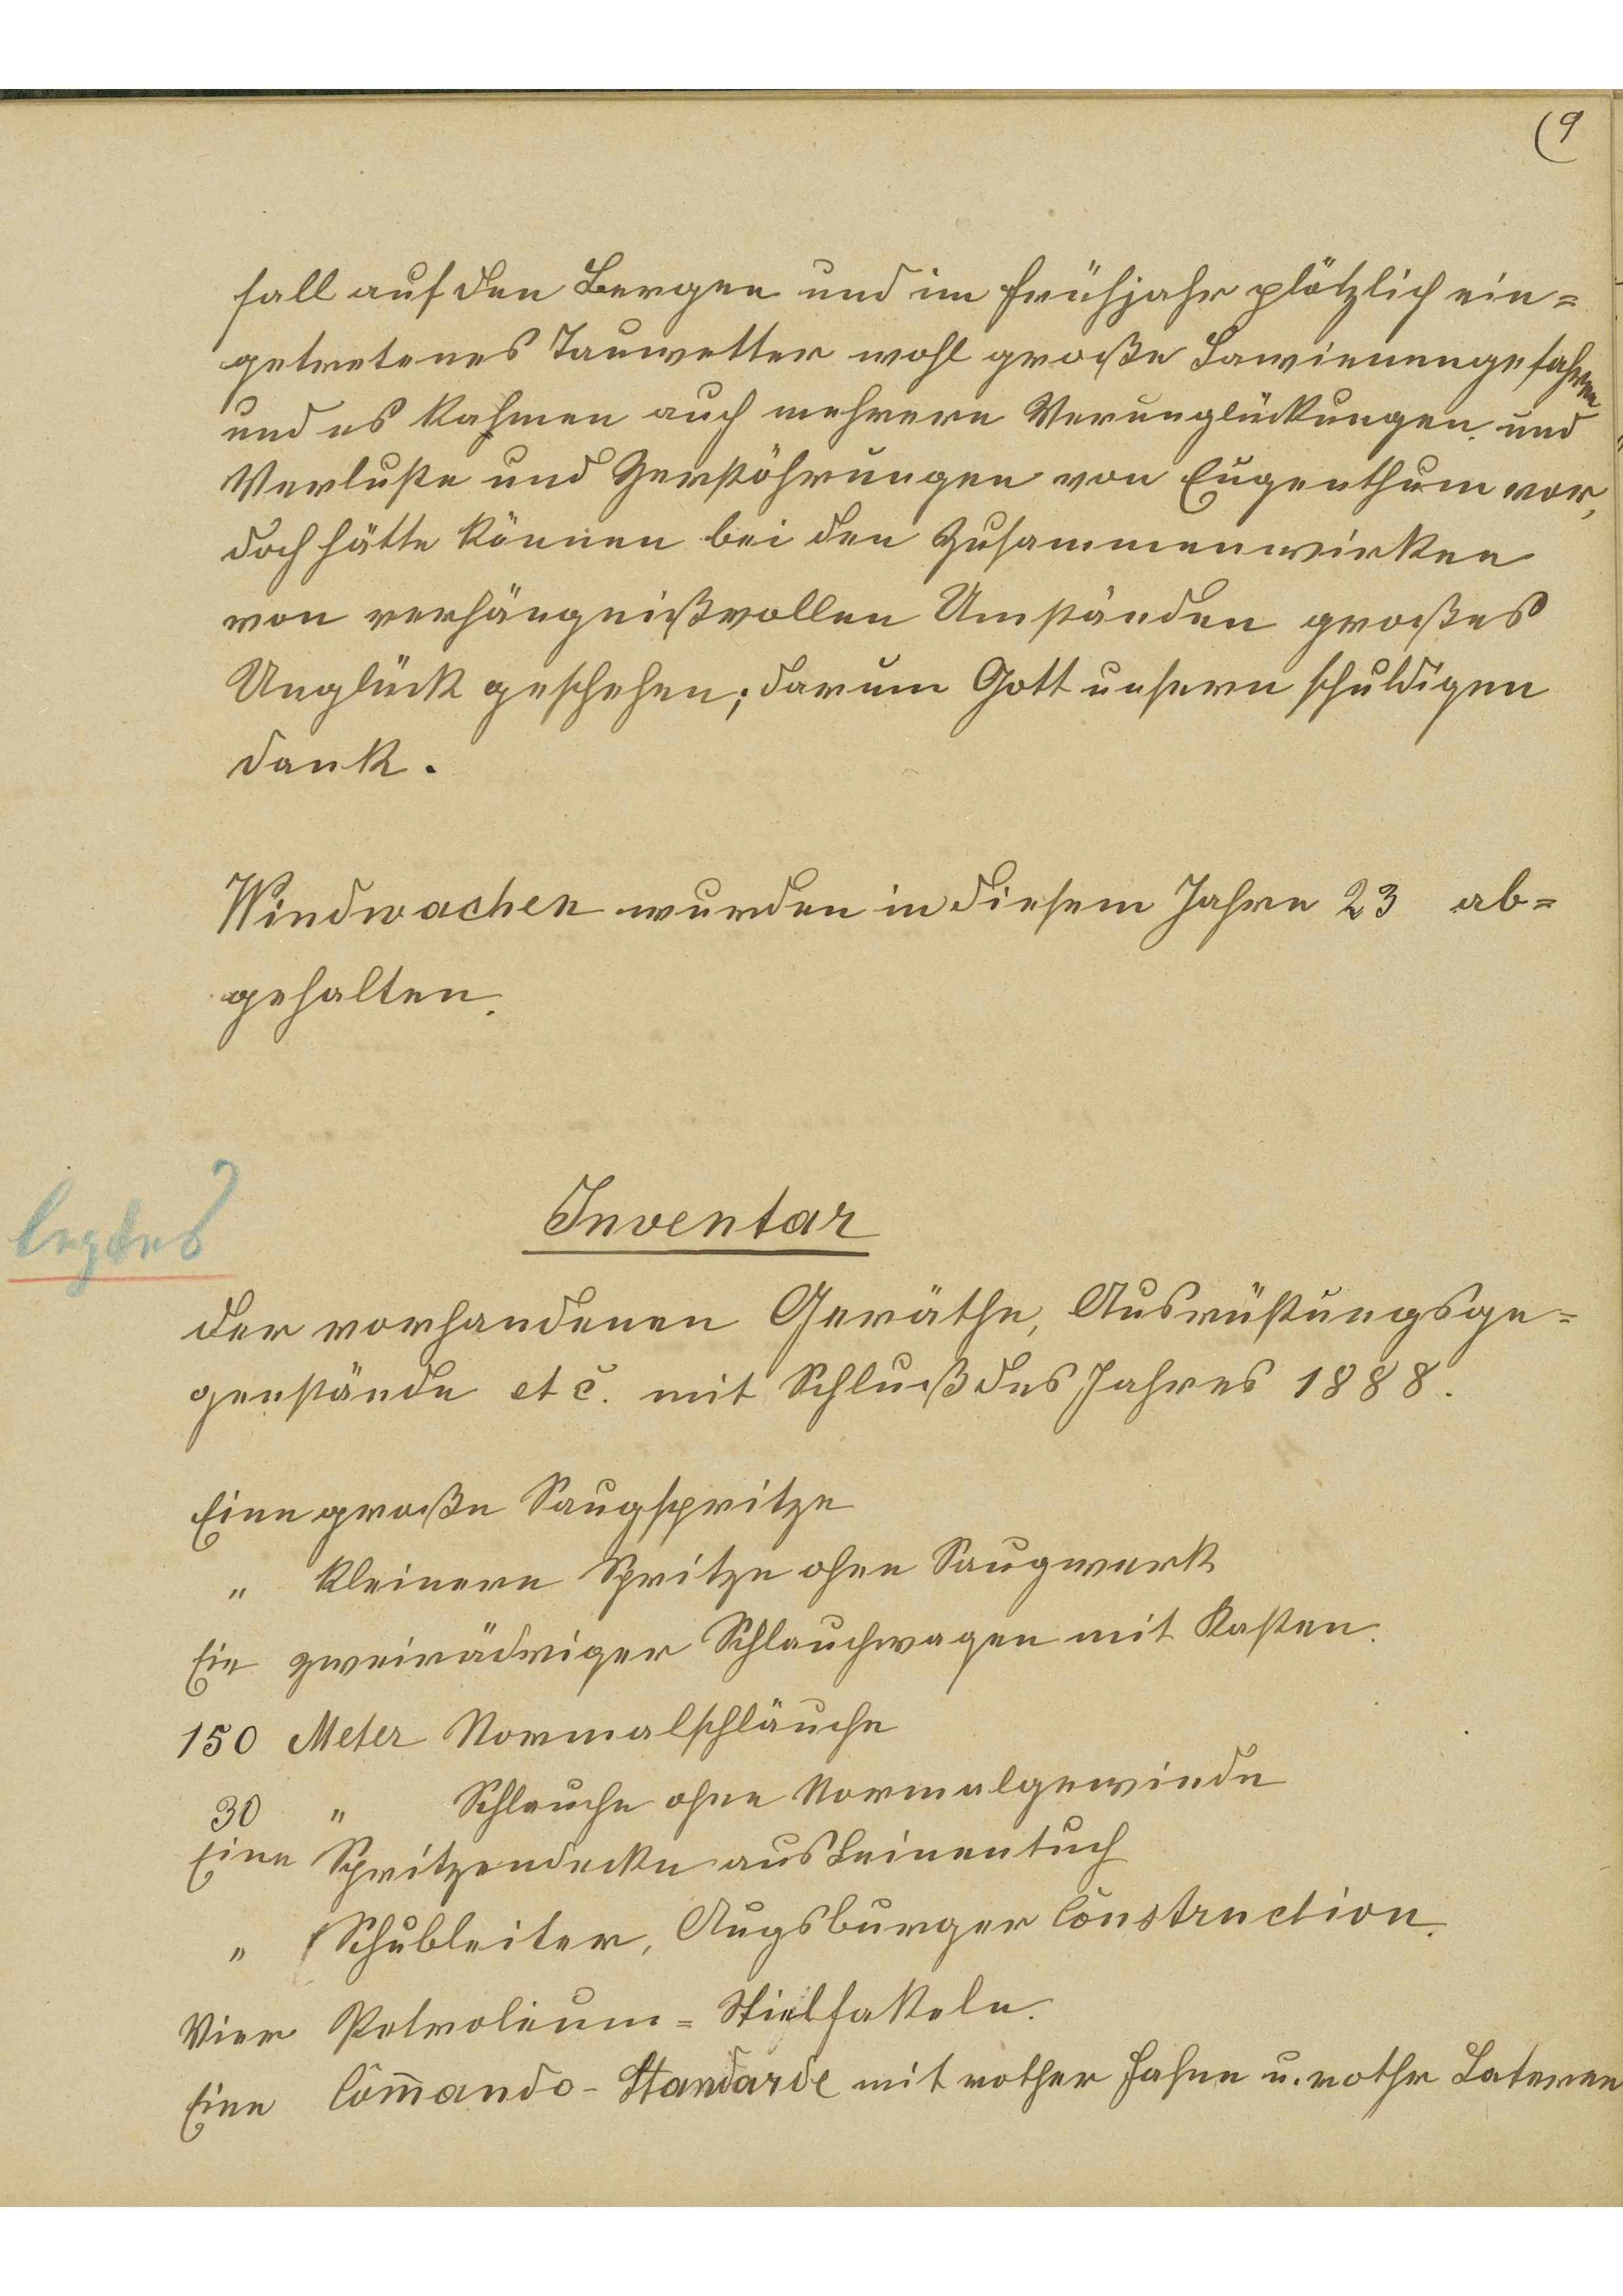 (9
fall auf den Bergen und im Frühjahr plötzlich ein=
getretenes Tauwetter wohl große Lawienengefahren
und es kahmen auch mehrere Verunglückungen und
Verluste und Zerstöhrungen von Eugenthum vor,
doch hätte können bei den Zusammenwirken
von verhängnißvollen Umständen großes
Unglück geschehen; darum Gott unsern schuldigen
Dank.
Windwachen wurden in diesem Jahre 23 ab=
gehalten.
Inventar
der vorhandenen Geräthe, Ausrüstungsge=
genstände etc. mit Schluß des Jahres 1888.
Eine große Saugspritze
" kleinere Spritze ohne Saugwerk
Ein zweirädriger Schlauchwagen mit Kasten.
150 Meter Normalschläuche
30 " Schleuche ohne Normalgewinde
Eine Spritzendecke aus Leinentuch
" Schubleiter, Augsburger Construction.
Vier Petroleum=Stielfakeln.
Eine Com̄ando-Standarde mit rother Fahne u. rother Laterne